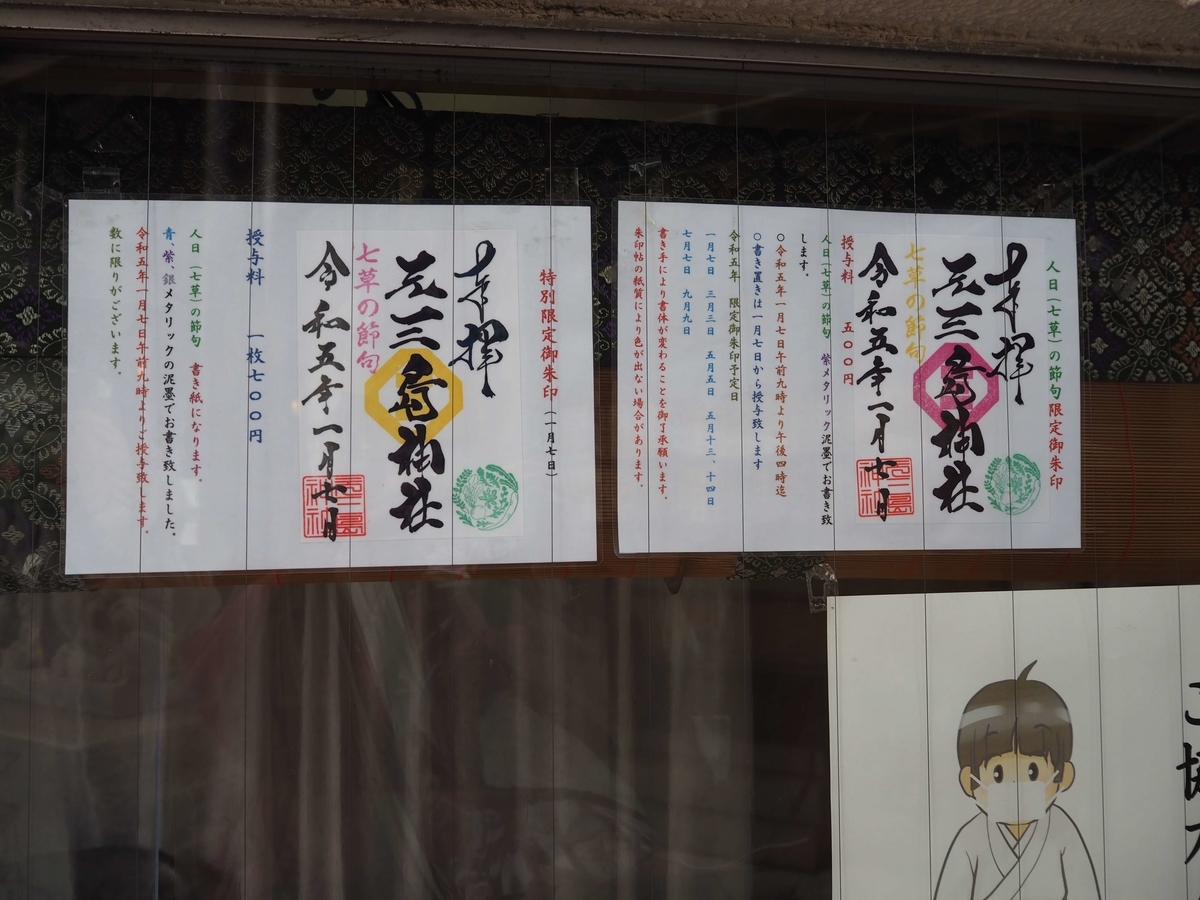 人日(七草)の節句限定御朱印
奉拝
元三島神社
七草の節句
令和五年一月七日
授与料 五〇〇円
人日(七草)の節句 紫メタリック泥墨でお書き致
します。
〇令和五年一月七日午前九時より午後四時迄
〇書き置きは一月七日から授与致します
令和五年 限定御朱印予定日
一月七日 三月三日 五月五日 五月十三、十四日
七月七日 九月九日
書き手により書体が変わることを御了承願います。
朱印帖の紙質により色が出ない場合があります。
特別限定御朱印(一月七日)
奉拝
元三島神社
七草の節句
令和五年一月七日
授与料 一枚七〇〇円
人日(七草)の節句 書き紙になります。
青、紫、銀メタリックの泥墨でお書き致しました。
令和五年一月七日午前九時よりご授与致します。
数に限りがございます。